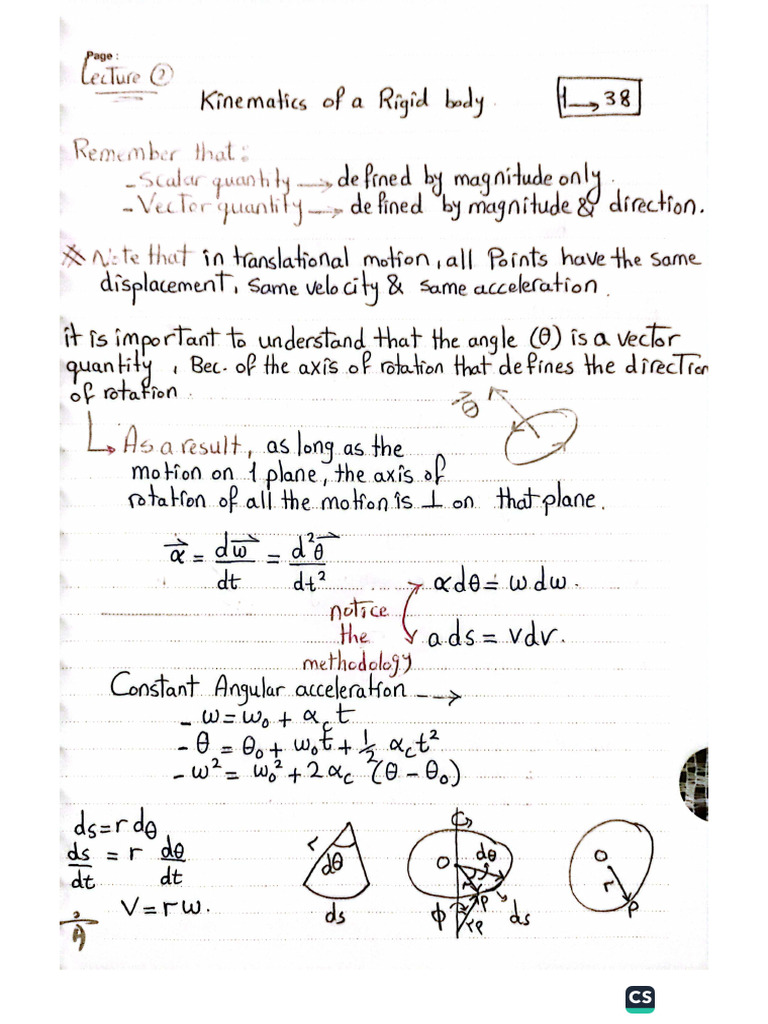 Page :
Lecture ②
Kinematics of a Rigid body.
1 → 38
Remember that:
- Scalar quantity → defined by magnitude only.
- Vector quantity → defined by magnitude & direction.
※ Note that in translational motion, all Points have the same
displacement, same velocity & same acceleration.
it is important to understand that the angle (θ) is a vector
quantity, Bec. of the axis of rotation that defines the direction
of rotation.
θ⃗
↳ As a result, as long as the
motion on 1 plane, the axis of
rotation of all the motion is ⊥ on that plane.
α⃗ = dω⃗/dt = d²θ⃗/dt²
αdθ = ωdω.
notice
the
methodology
a ds = vdv.
Constant Angular acceleration --→
- ω = ω₀ + α_c t
- θ = θ₀ + ω₀t + 1/2 α_c t²
- ω² = ω₀² + 2α_c (θ - θ₀)
ds = r dθ
ds/dt = r dθ/dt
V = rω.
r
dθ
ds
O
dθ
r
P
ds
φ
rp
O
r
P
CS